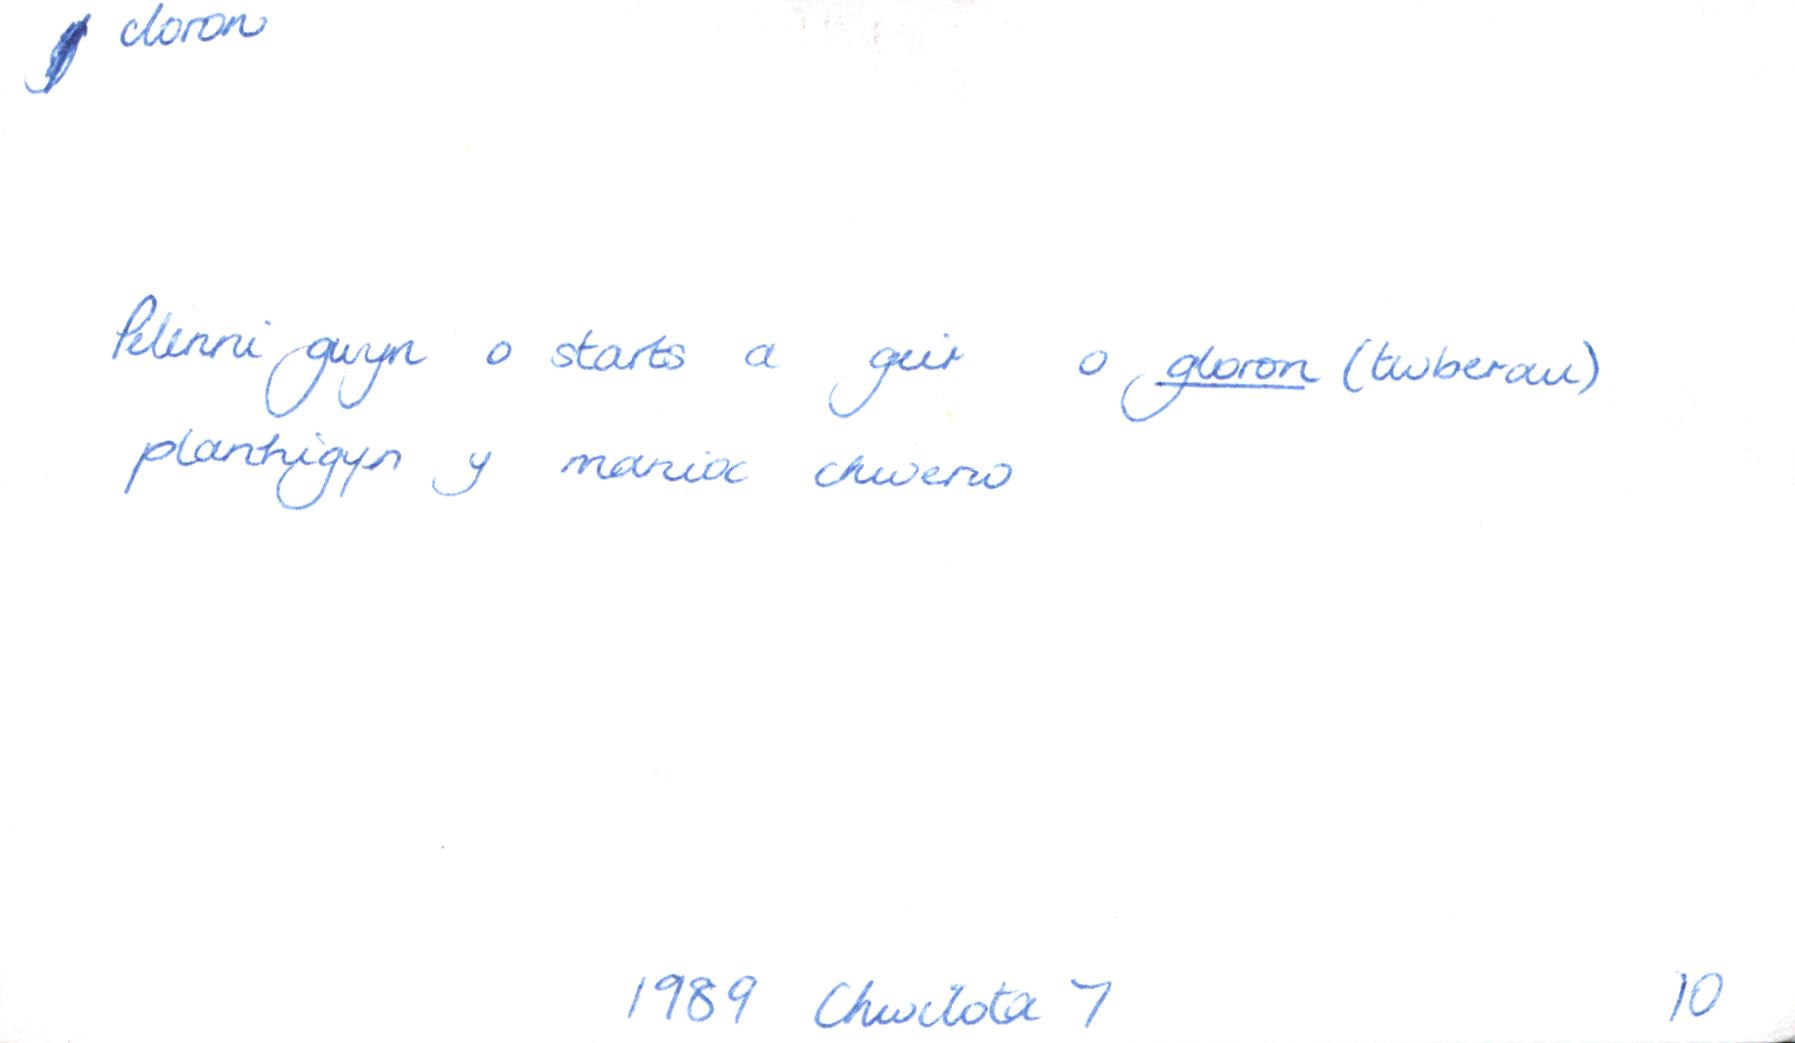 cloron
Pelenni gwyn o starts a geir o gloron (twberau)
planhigyn y manioc chwerw
1989 Chwilota 7 10